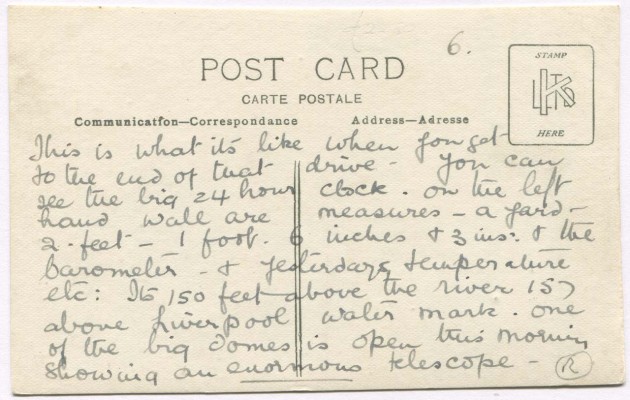 6.
POST CARD
CARTE POSTALE
Communication—Correspondance
Address—Adresse
STAMP
KLTD
HERE
This is what it's like when you get
to the end of that drive - You can
see the big 24 hour clock. on the left
hand wall are measures - a yard -
2 feet - 1 foot. 6 inches & 3 ins: & the
barometer - & yesterdays temperature
etc: Its 150 feet above the river 157
above Liverpool water mark. one
of the big domes is open this morning
showing an enormous telescope -
R